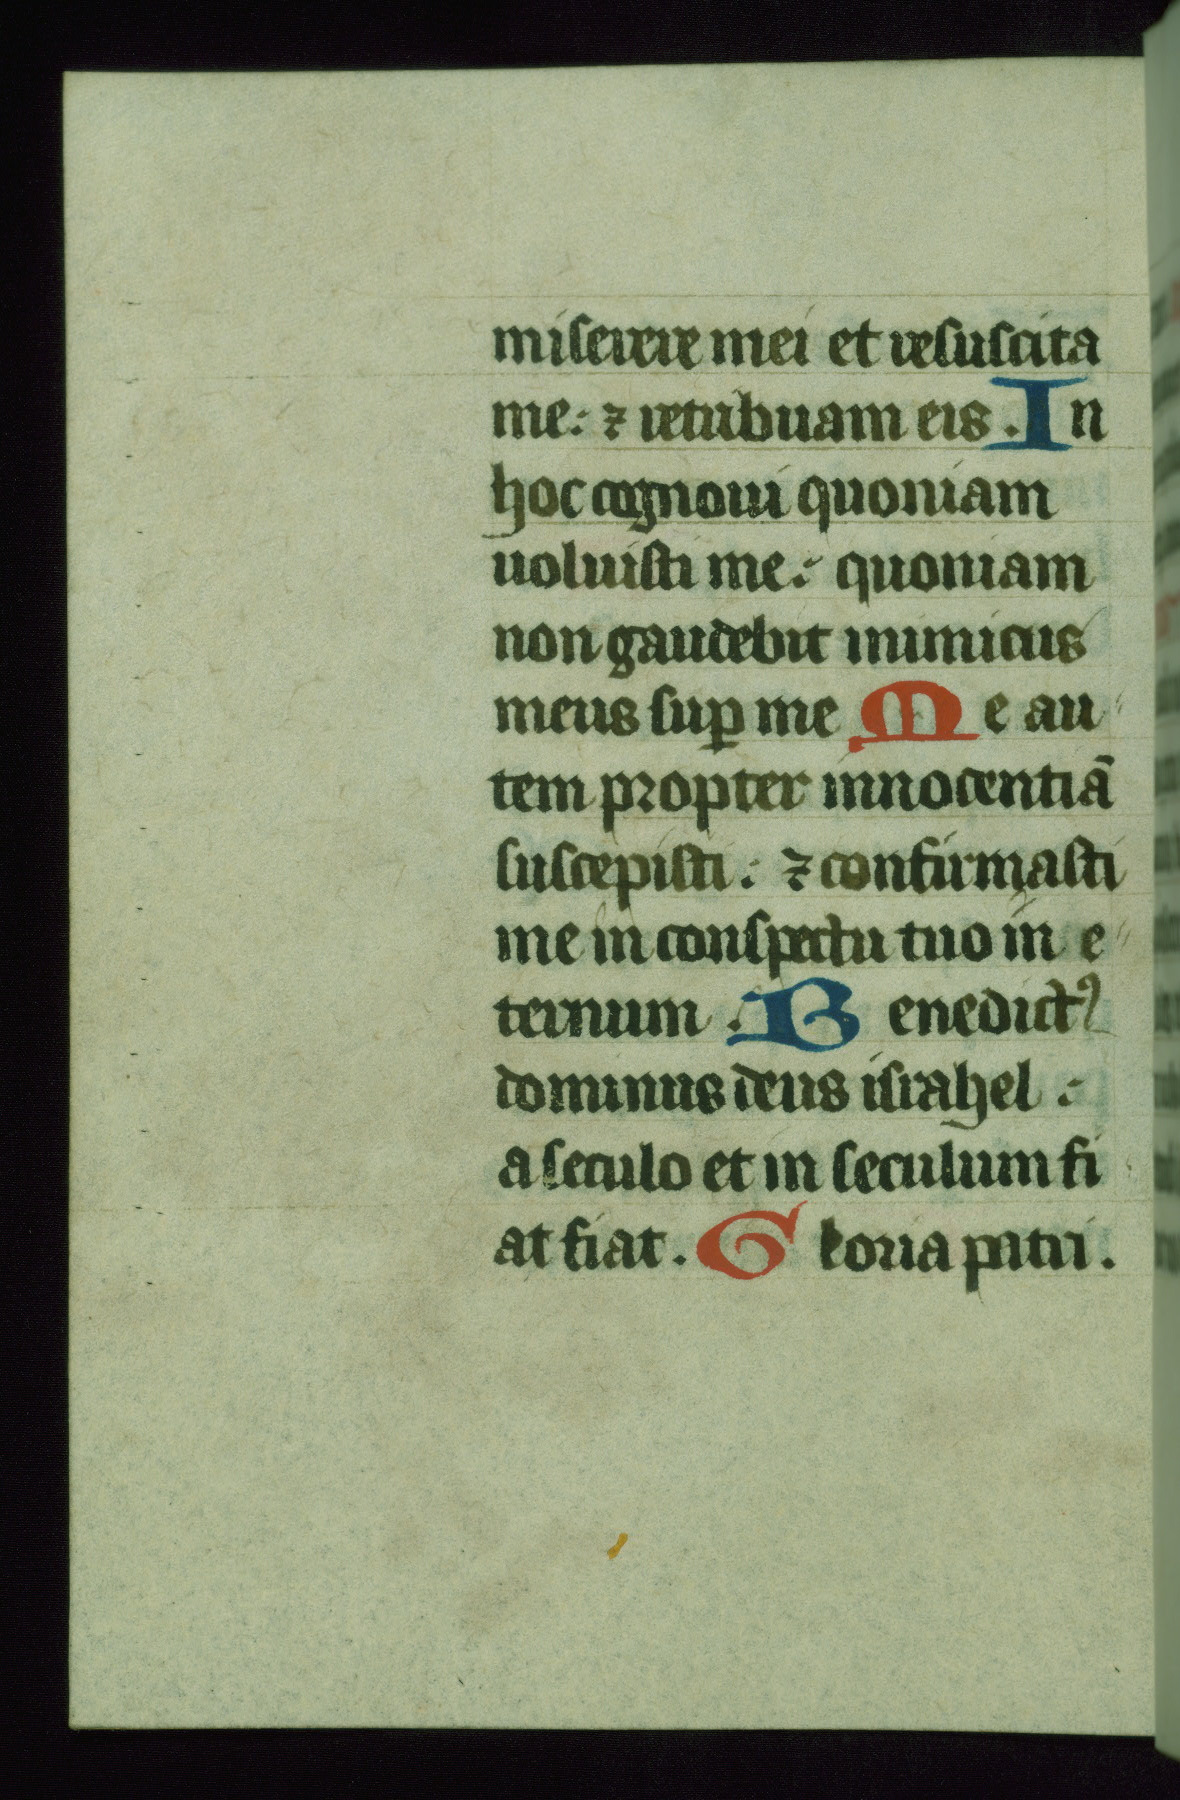 miserere mei et resuscita
me: ⁊ retribuam eis. In
hoc cognoui quoniam
uoluisti me: quoniam
non gaudebit inimicus
meus sup̱ me Me au
tem propter innocentiā
suscepisti: ⁊ confirmasti
me in conspectu tuo in e
ternum. Benedictꝰ
dominus deus israhel:
a seculo et in seculum fi
at fiat. Gloria patri.